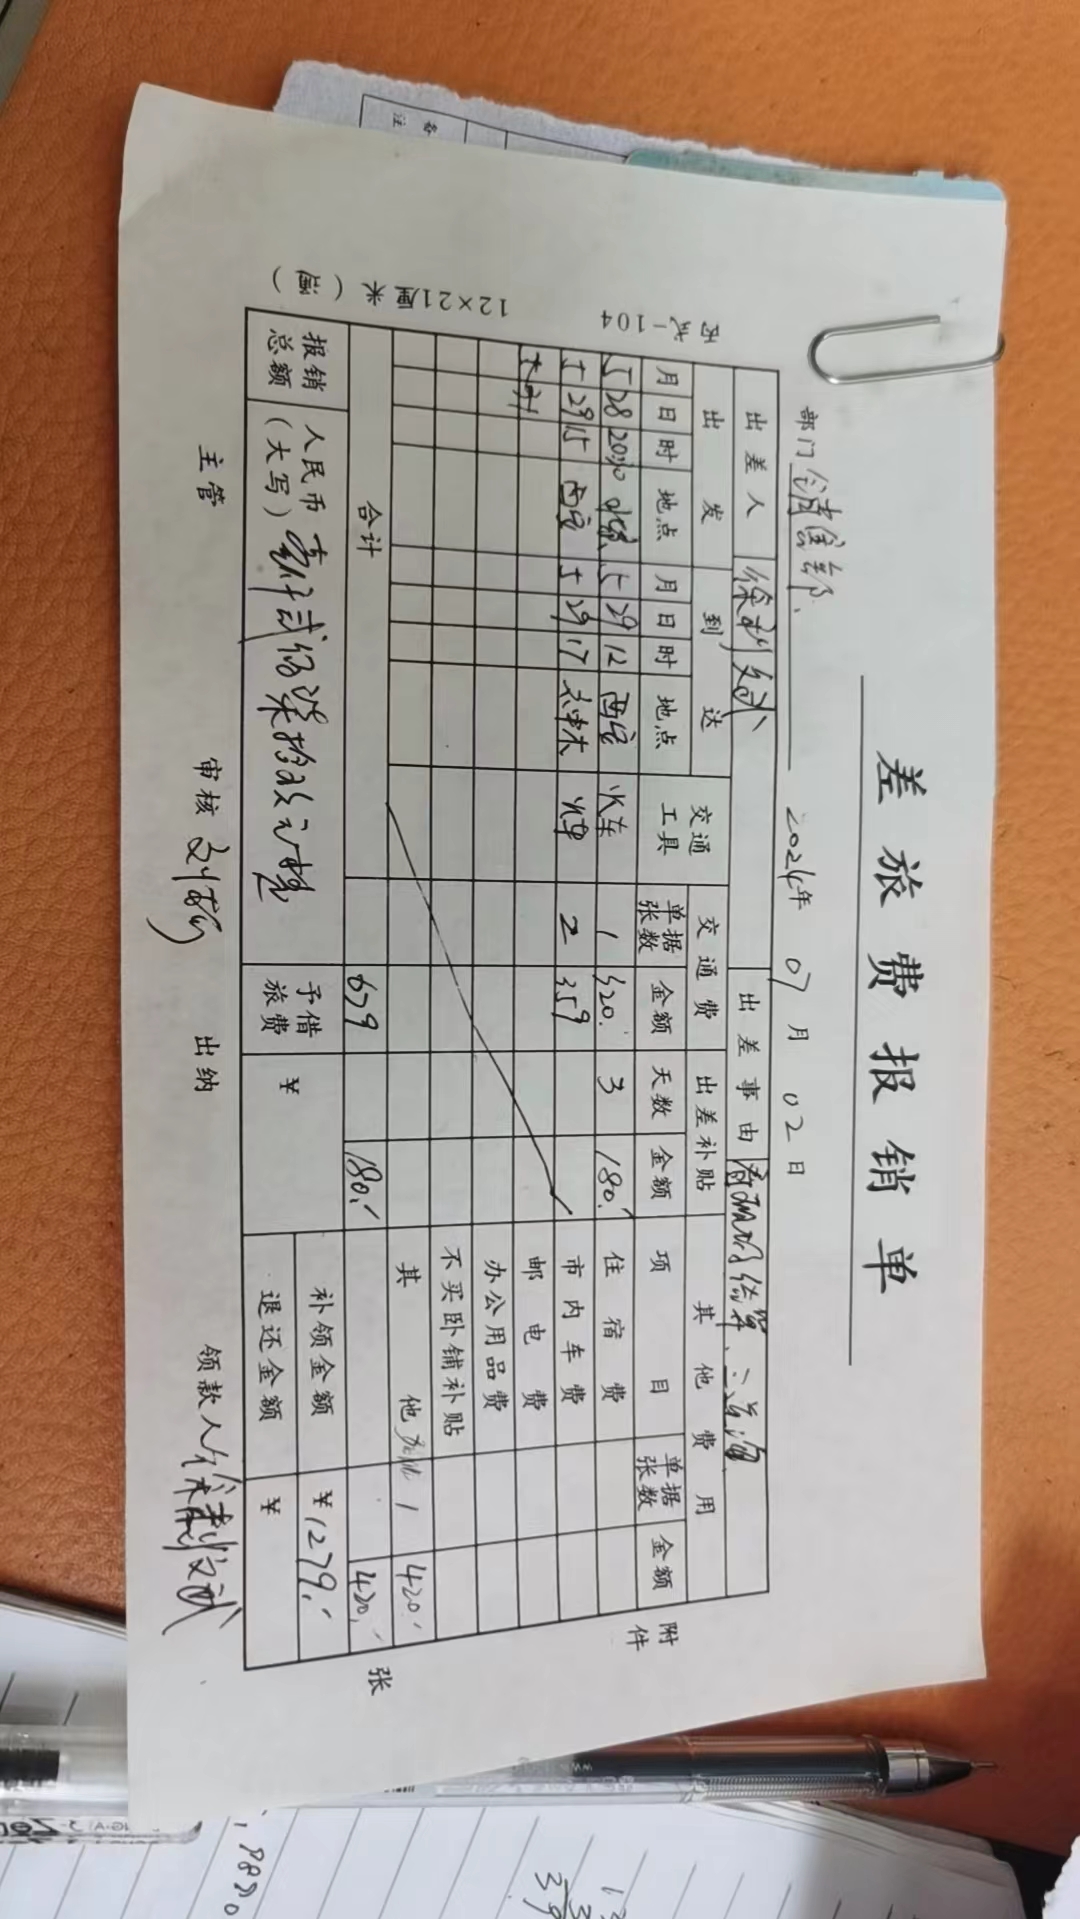 差旅费报销单
部门 销售部 2024年 07月 02日
出差人 徐 出差事由
出发 到达 交通工具 交通费 出差补贴 其他费用
月 日 时 地点 月 日 时 地点 单据张数 金额 天数 金额 项目 单据张数 金额
5 28 20:30 5 29 12 西安 火车 1 320. 3 180. 住宿费
5 29 15 西安 5 29 17 神木 火车 2 359 市内车费
邮电费
办公用品费
不买卧铺补贴
其他 1 420.
合计 679 180. 420.
报销总额 人民币(大写) 壹仟贰佰柒拾玖元整 予借旅费 ¥ 补领金额 ¥1279.
退还金额 ¥
主管 审核 出纳 领款人 徐
附件 张
丙式-104
12×21厘米
备注